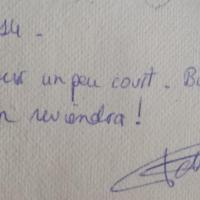 14 -
un peu court. B
n reviendra !